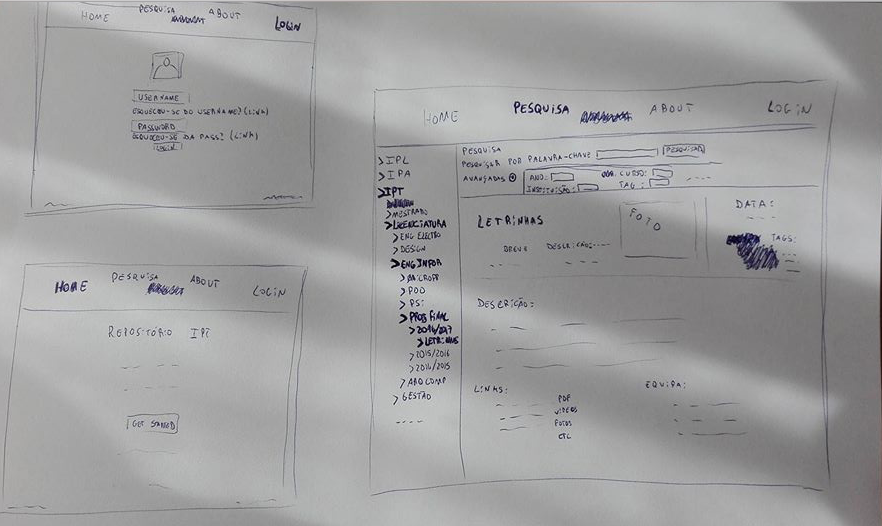 HOME PESQUISA ABOUT LOGIN
USERNAME
ESQUECEU-SE DO USERNAME? (LINK)
PASSWORD
ESQUECEU-SE DA PASS? (LINK)
LOGIN
HOME PESQUISA ABOUT LOGIN
REPOSITÓRIO IPT
GET STARTED
HOME PESQUISA ABOUT LOGIN
>IPL
>IPA
>IPT
>MESTRADO
>LICENCIATURA
>ENG ELECTRO
>DESIGN
>ENG INFOR
>POO
>PSI
>PROJ FINAL
>2016/2017
>LETRINHAS
>2015/2016
>2014/2015
>ARQ COMP
>GESTÃO
PESQUISA
PESQUISAR POR PALAVRA-CHAVE PESQUISAR
AVANÇADAS ANO: CURSO:
INSTITUIÇÃO: TAG:
LETRINHAS
BREVE DESCRIÇÃO:
FOTO
DATA:
TAGS:
DESCRIÇÃO:
LINKS:
PDF
VIDEOS
FOTOS
ETC
EQUIPA: